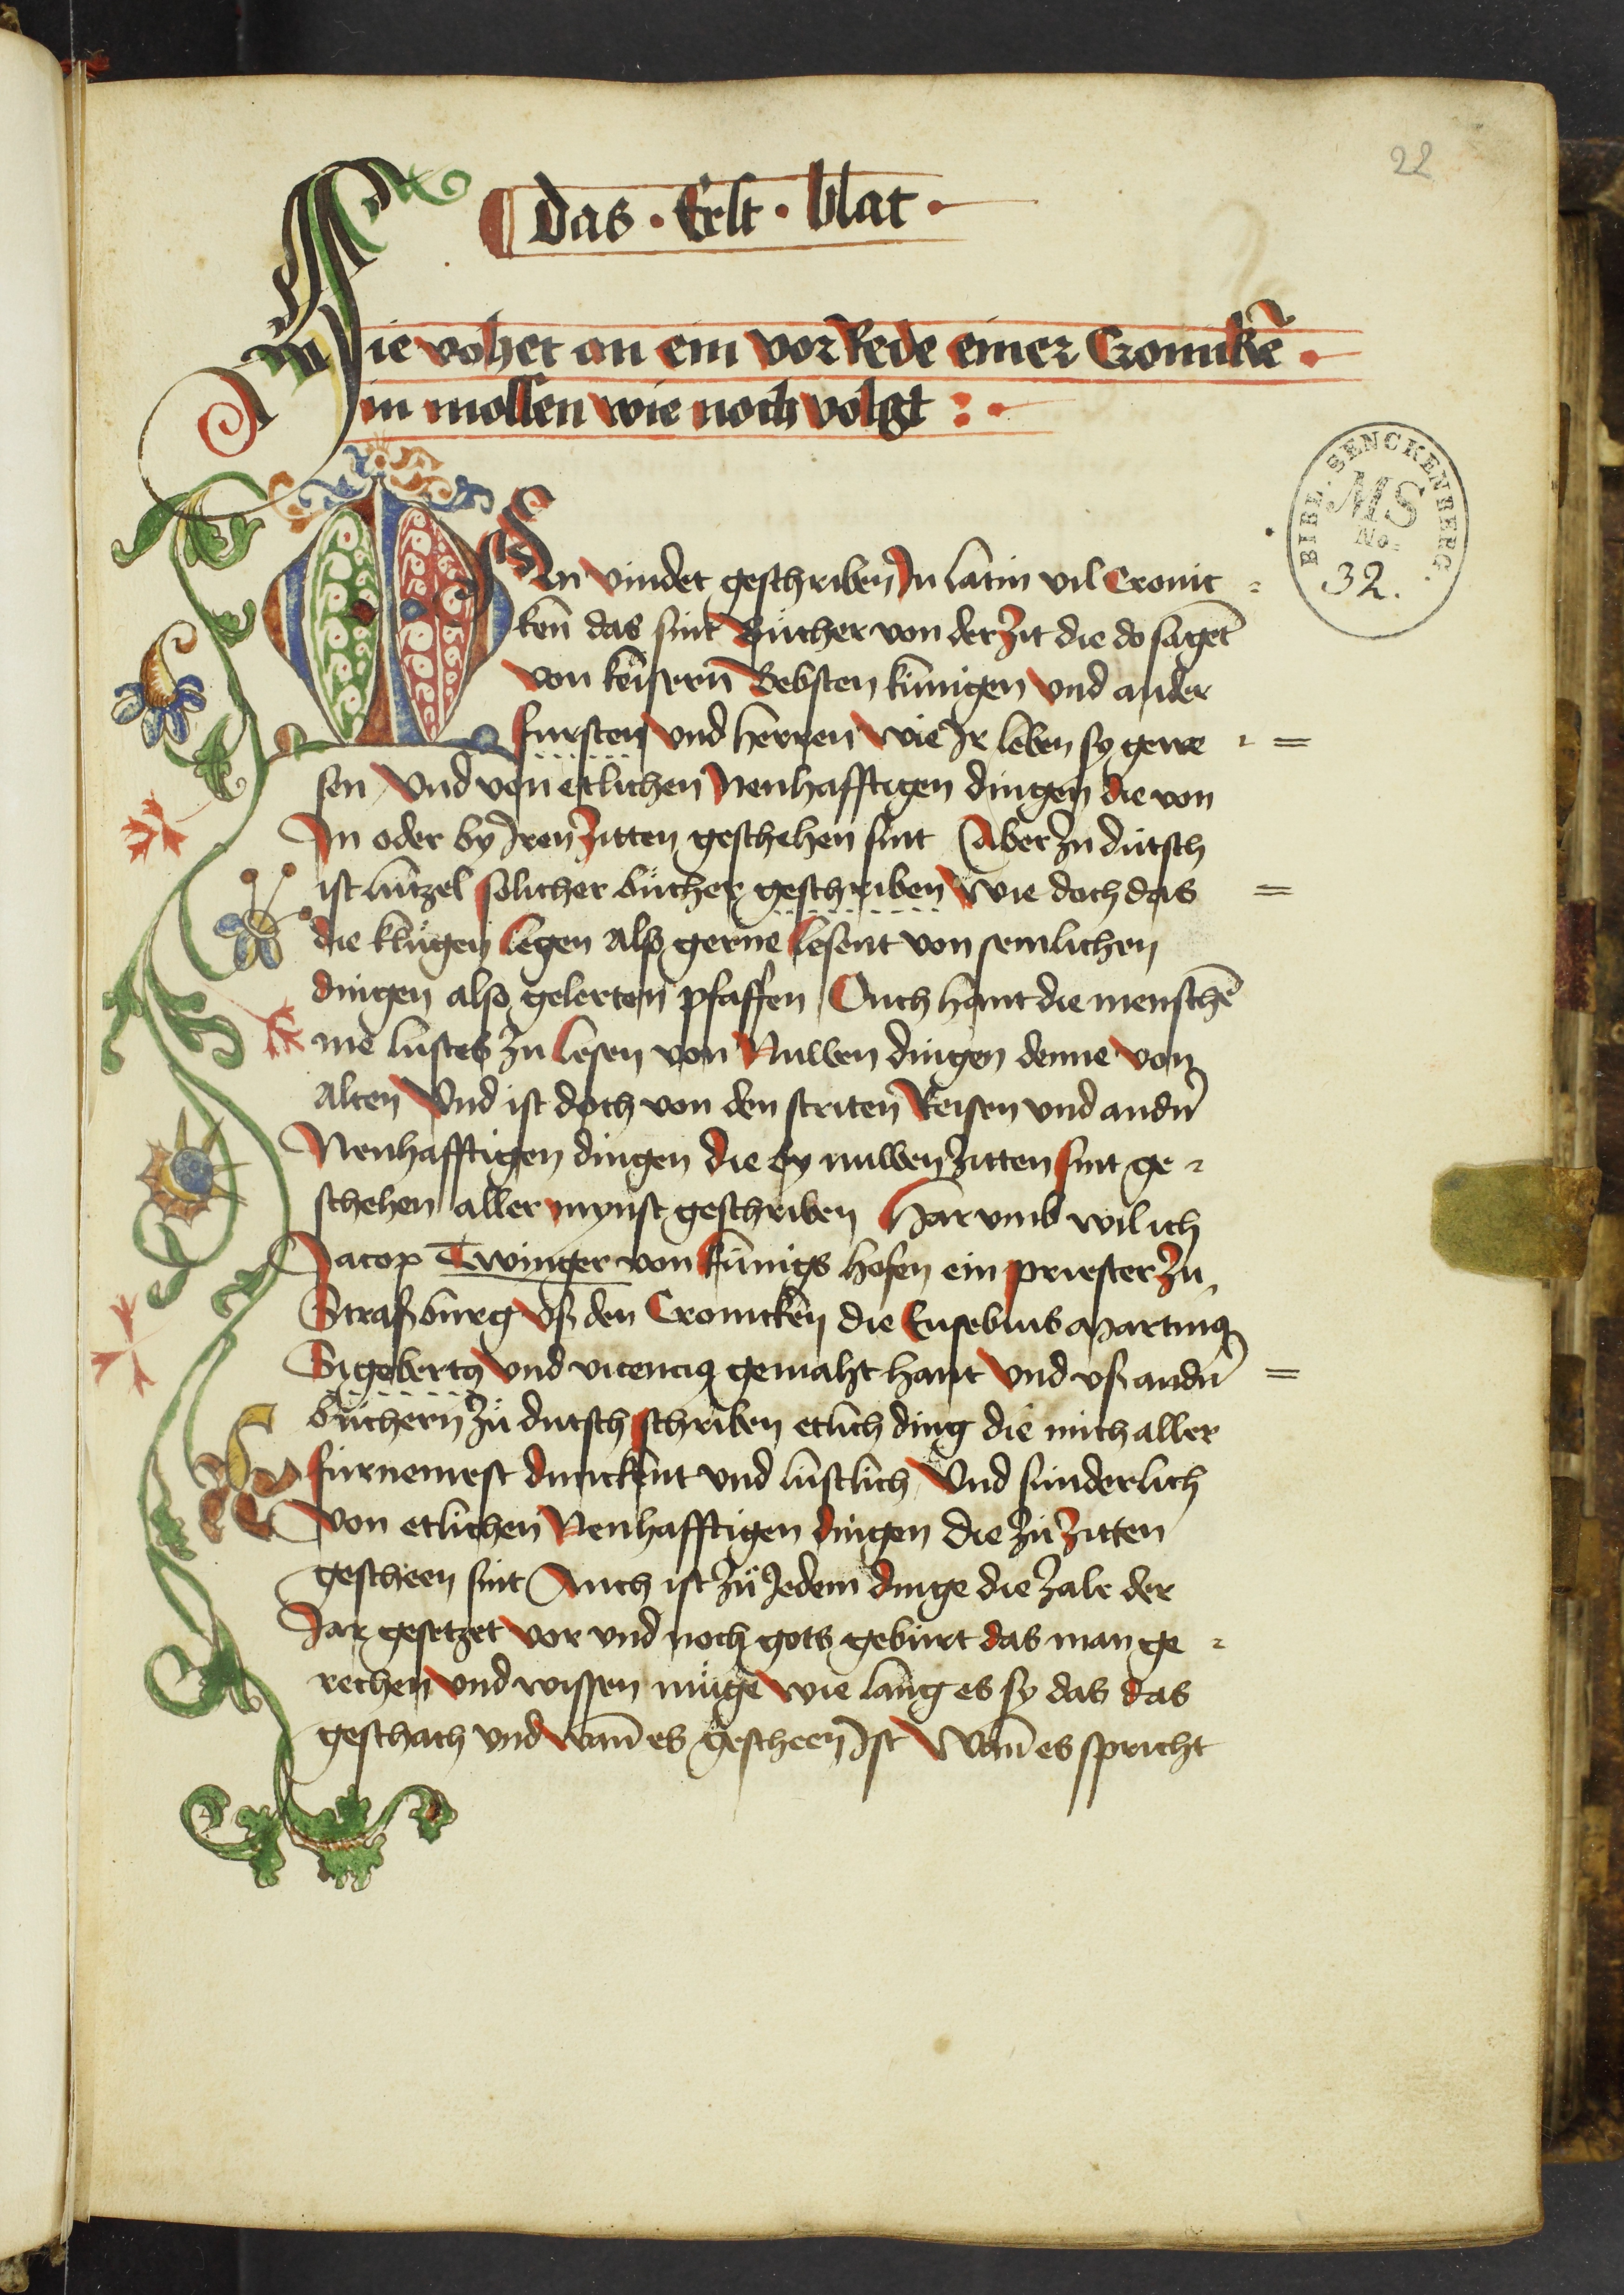 22
das · Erst · blat ·
Hie vohet an ein vor Rede einer Cronikē ·
in mossen wie noch volgt : ·
BIBL. SENCKENBERG.
MS
No.
32.
MAn vindet geschriben In latin vil Cronic =
ken das sint Bücher von der zit die do sagēt
von keisern Bebsten künigen vnd ander
fursten vnd herren wie Ir leben sy gewe =
sen Vnd von etlichen Nenhafftigen dingen die von
In oder by Iren zitten geschehen sint Aber zu dütsch
ist lützel solicher bücher geschriben wie doch das
die klügen legen alß gerne lesent von semlichen
dingen also gelerten pfaffen Ouch hant die menschē
me lustes zu lesen von Nuwen dingen denne von
alten Vnd ist doch von den striten Reisen vnd andn̄
Nenhafftigen dingen die by nuwen zitten sint ge =
schehen aller mynst geschriben Har vmb wil ich
Jacop Twinger von künigs hofen ein priester zu
Straßburg vß den Cronicken die Eusebius Martinꝯ
Sigebertꝯ vnd vicenciꝯ gemaht hant Vnd vß andn̄
büchern zü dutsch schriben etlich ding die mich aller
fürnemest dunckent vnd lustlich Vnd sunderlich
von etlichen Nenhafftigen dingen die zü zitten
gescheen sint Auch ist zü Jedem dinge die zale der
Jar gesetzet vor vnd noch gots gebürt das man ge =
rechen vnd wissen müge wie lang es sy das das
geschach vnd wan̄ es gescheen Ist Wan̄ es spricht